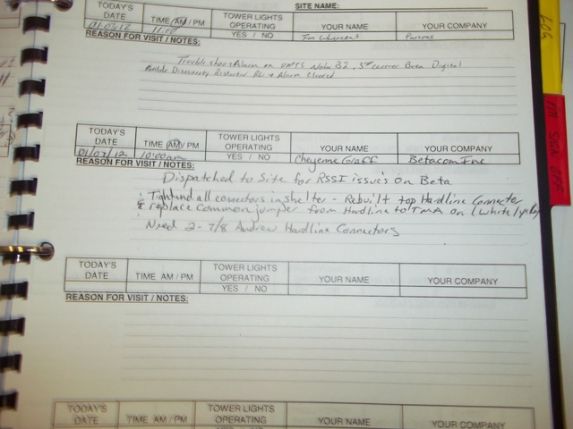 SITE NAME:
TODAY'S DATE TIME AM / PM TOWER LIGHTS OPERATING YOUR NAME YOUR COMPANY
YES / NO
REASON FOR VISIT / NOTES:
Alarm on 3rd carrier Beta Digital
Alarm Cleared
TODAY'S DATE TIME AM / PM TOWER LIGHTS OPERATING YOUR NAME YOUR COMPANY
10:00am YES / NO Cheyenne Graff Betacom Inc
REASON FOR VISIT / NOTES:
Dispatched to Site for RSSI issue's on Beta
Tightend all conectors in shelter - Rebuilt top Hardline Connector
& replace Common jumper from Hardline to TMA on (White/
Need 2 - 7/8 Andrew Hardline Connectors
TODAY'S DATE TIME AM / PM TOWER LIGHTS OPERATING YOUR NAME YOUR COMPANY
YES / NO
REASON FOR VISIT / NOTES:
TODAY'S DATE TIME AM / PM TOWER LIGHTS OPERATING YOUR NAME YOUR COMPANY
YES / NO
LOG
SIGN OFF